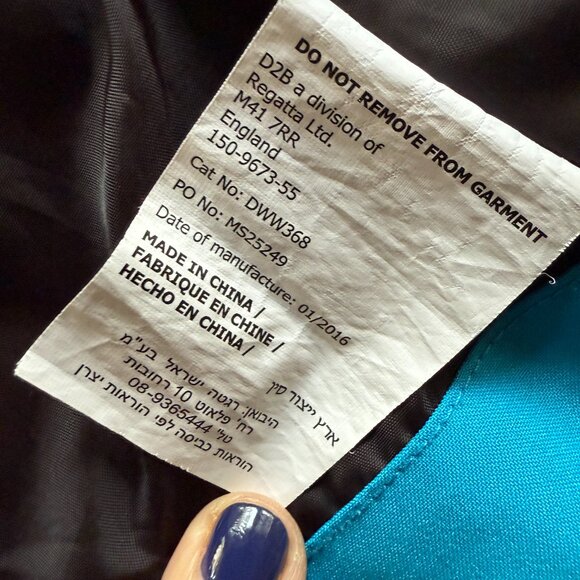 DO NOT REMOVE FROM GARMENT
D2B a division of
Regatta Ltd.
M41 7RR
England
150-9673-55
Cat No: DWW368
PO No: MS25249
Date of manufacture: 01/2016
MADE IN CHINA /
FABRIQUE EN CHINE /
HECHO EN CHINA /
ארץ ייצור סין
היבואן: רגטה ישראל בע"מ
רח' פלאוט 10 רחובות
טל' 08-9365444
הוראות כביסה לפי הוראות יצרן